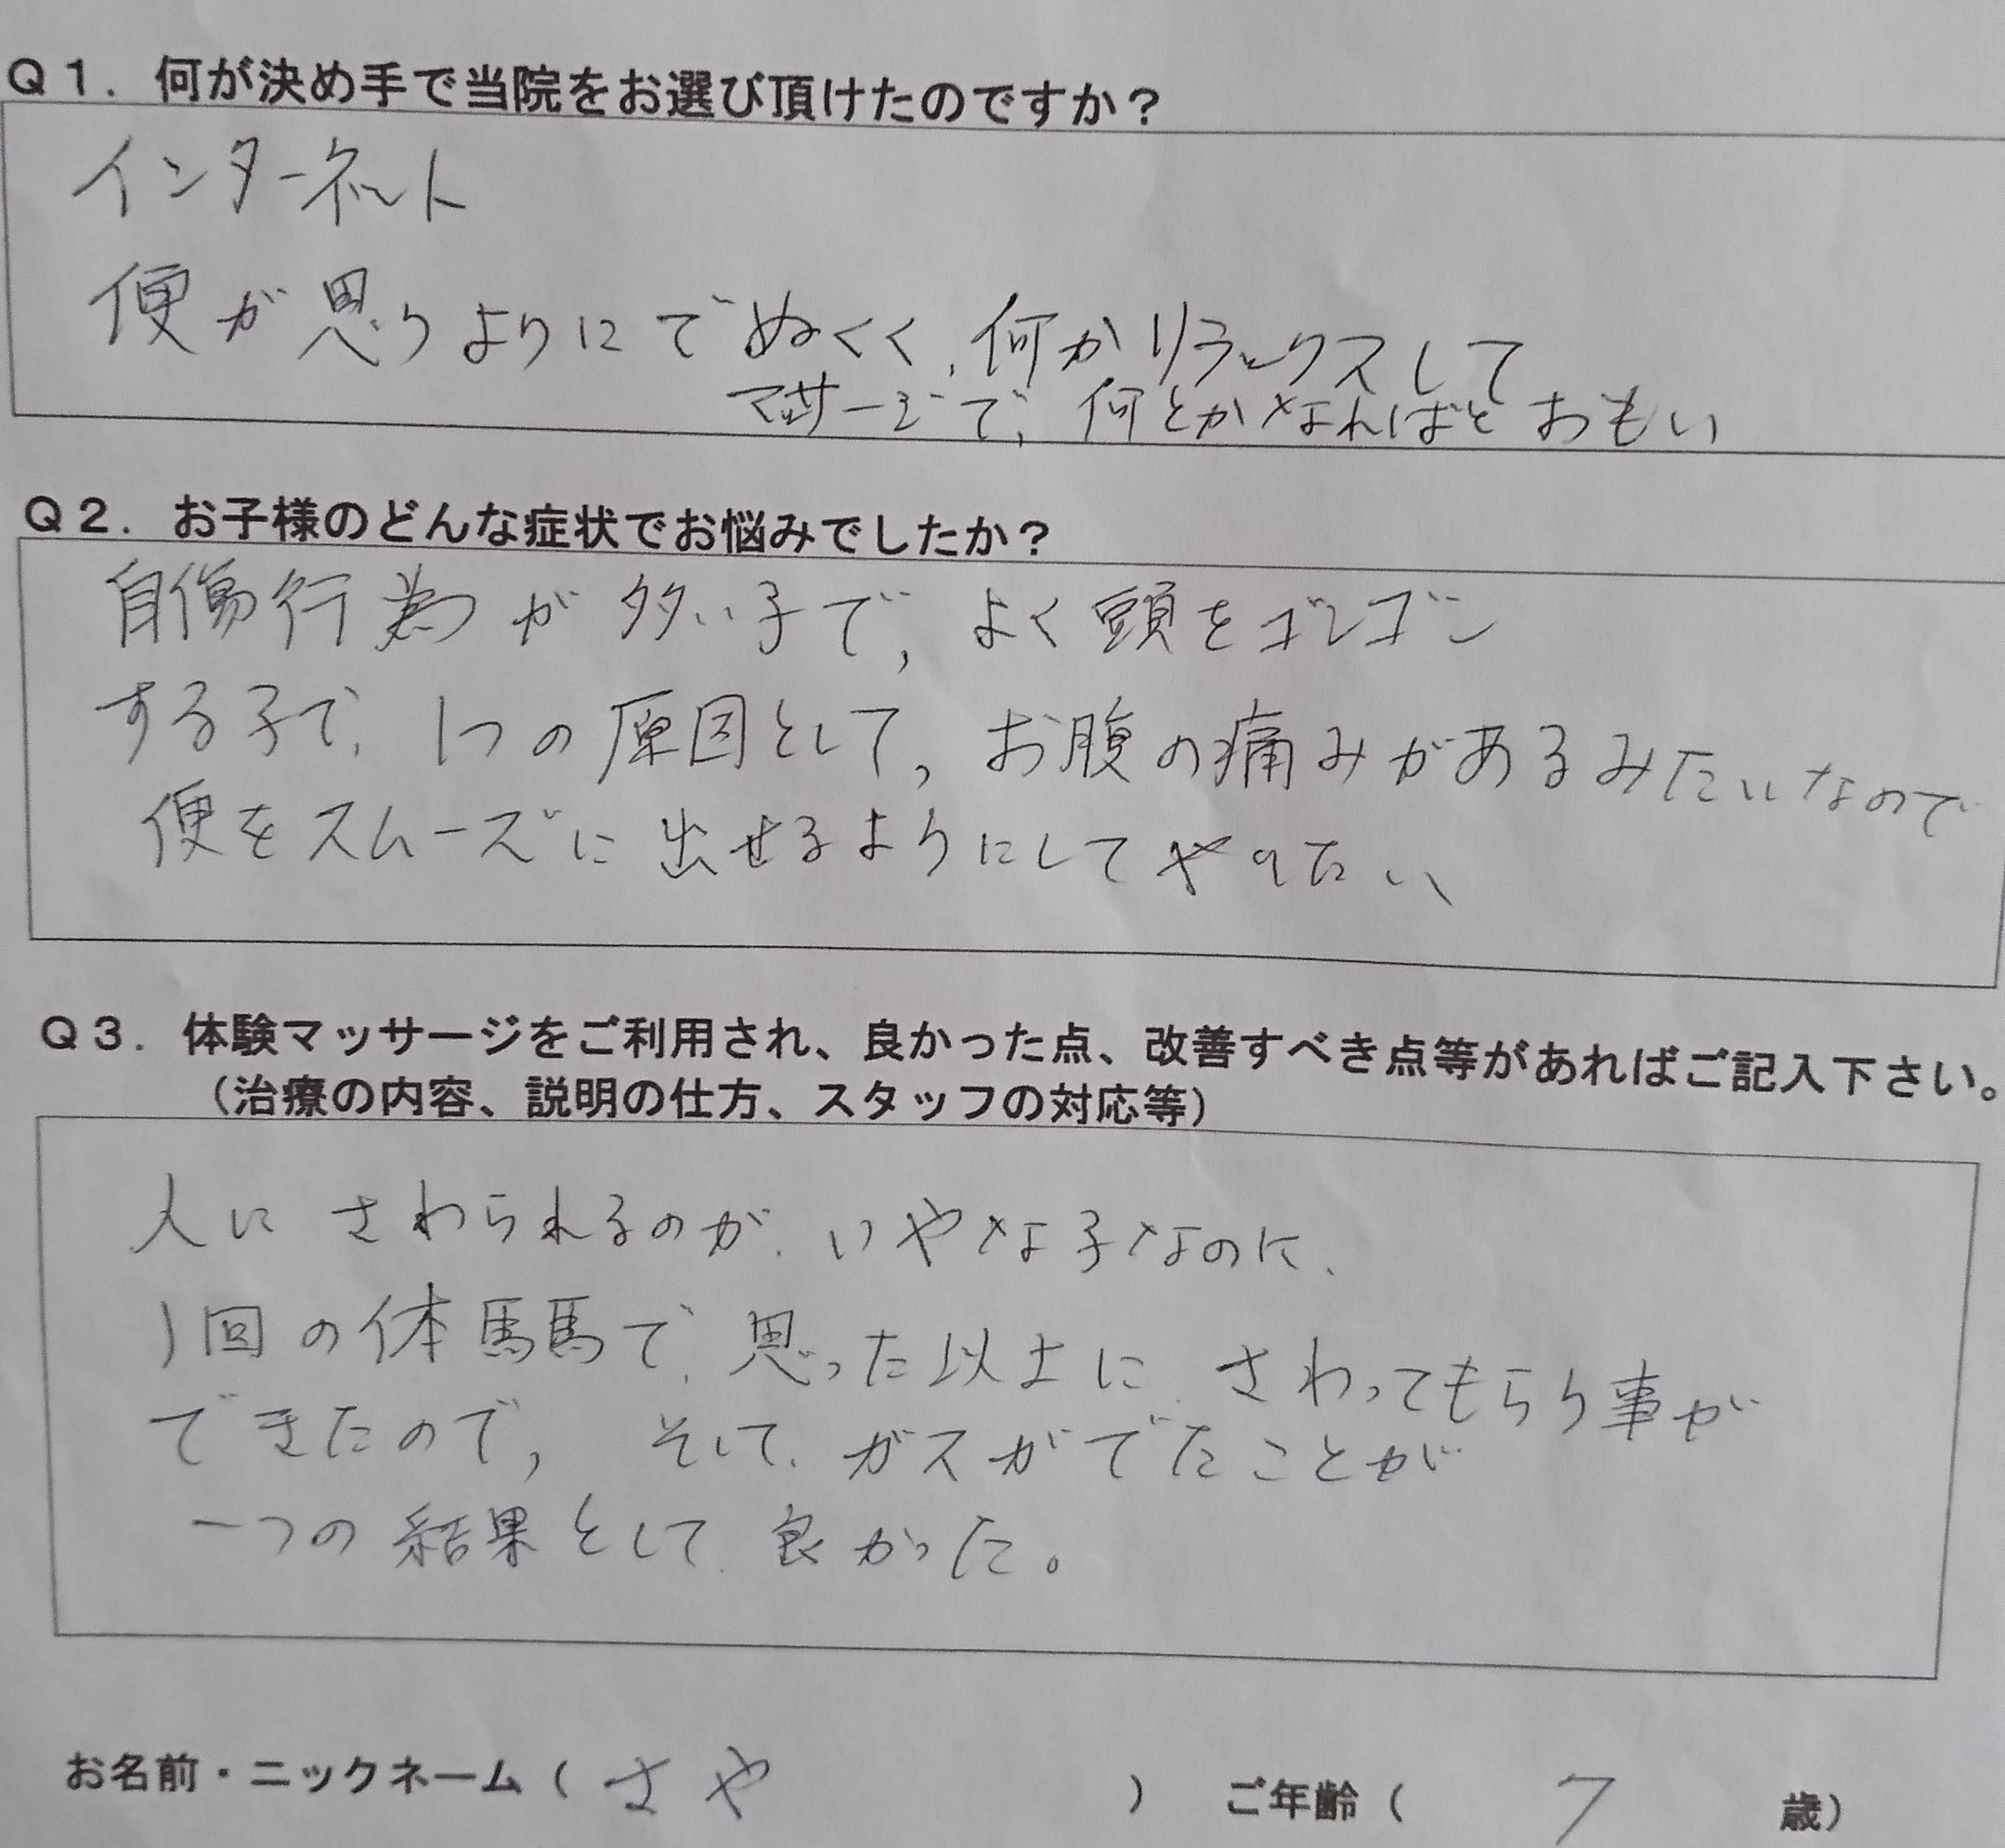 Q1. 何が決め手で当院をお選び頂けたのですか？
インターネット
便が思うようにでぬくく、何かリラックスして
マッサージで、何とかなればとおもい
Q2. お子様のどんな症状でお悩みでしたか？
自傷行為が多い子で、よく頭をゴンゴン
する子で、1つの原因として、お腹の痛みがあるみたいなので
便をスムーズに出せるようにしてやりたい、
Q3. 体験マッサージをご利用され、良かった点、改善すべき点等があればご記入下さい。
（治療の内容、説明の仕方、スタッフの対応等）
人にさわられるのが、いやな子なのに、
1回の体験で、思った以上に、さわってもらう事が
できたので、そして、ガスがでたことが
一つの結果として、良かった。
お名前・ニックネーム（ さや ） ご年齢（ 7 歳）